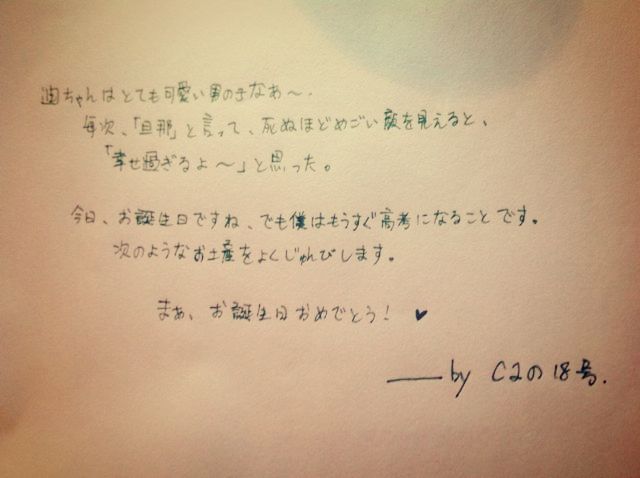 迪ちゃんはとても可愛い男の子なあ〜.
毎次、「旦那」と言って、死ぬほどめごい顔を見えると、
「幸せ過ぎるよ〜」と思った。
今日、お誕生日ですね、でも僕はもうすぐ高考になることです。
次のようなお土産をよくじゅんびします。
まぁ、お誕生日おめでとう! ♥
——by C2の18号.